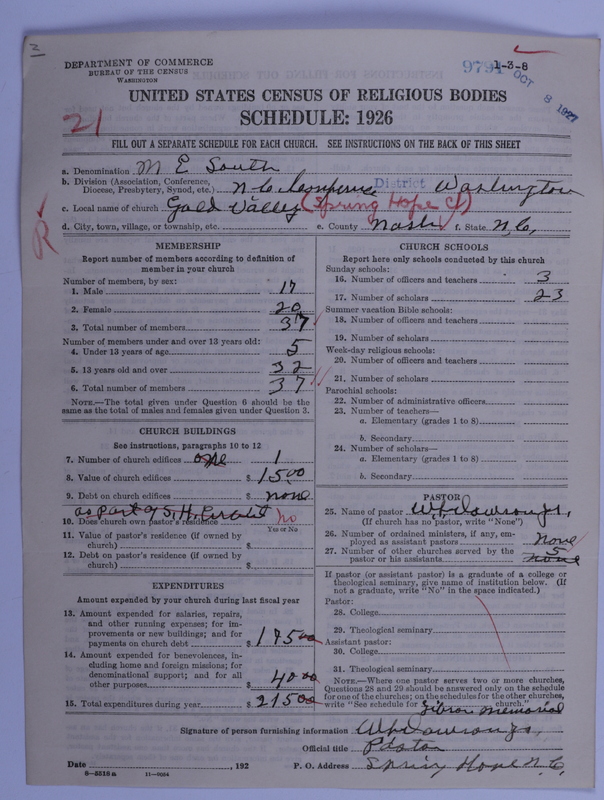 2
DEPARTMENT OF COMMERCE
BUREAU OF THE CENSUS
WASHINGTON
9791 1-3-8
OCT 8 1927
UNITED STATES CENSUS OF RELIGIOUS BODIES
SCHEDULE: 1926
21
FILL OUT A SEPARATE SCHEDULE FOR EACH CHURCH. SEE INSTRUCTIONS ON THE BACK OF THIS SHEET
a. Denomination M E South
b. Division (Association, Conference, Diocese, Presbytery, Synod, etc.) N.C. Conference District Washington
c. Local name of church Gold Valley (Spring Hope C)
d. City, town, village, or township, etc. e. County Nash f. State N.C.
R
MEMBERSHIP
Report number of members according to definition of
member in your church
Number of members, by sex:
1. Male 17
2. Female 20
3. Total number of members 37
Number of members under and over 13 years old:
4. Under 13 years of age 5
5. 13 years old and over 32
6. Total number of members 37
NOTE.—The total given under Question 6 should be the
same as the total of males and females given under Question 3.
CHURCH BUILDINGS
See instructions, paragraphs 10 to 12
7. Number of church edifices one 1
8. Value of church edifices $ 1500
9. Debt on church edifices $ none
as part of S. H. Circuit
10. Does church own pastor's residence no
Yes or No
11. Value of pastor's residence (if owned by
church) $
12. Debt on pastor's residence (if owned by
church) $
EXPENDITURES
Amount expended by your church during last fiscal year
13. Amount expended for salaries, repairs,
and other running expenses; for im-
provements or new buildings; and for
payments on church debt $ 175 00
14. Amount expended for benevolences, in-
cluding home and foreign missions; for
denominational support; and for all
other purposes 40 00
15. Total expenditures during year $ 215 00
CHURCH SCHOOLS
Report here only schools conducted by this church
Sunday schools:
16. Number of officers and teachers 3
17. Number of scholars 23
Summer vacation Bible schools:
18. Number of officers and teachers
19. Number of scholars
Week-day religious schools:
20. Number of officers and teachers
21. Number of scholars
Parochial schools:
22. Number of administrative officers
23. Number of teachers—
a. Elementary (grades 1 to 8)
b. Secondary
24. Number of scholars—
a. Elementary (grades 1 to 8)
b. Secondary
PASTOR
25. Name of pastor
(If church has no pastor, write "None")
26. Number of ordained ministers, if any, em-
ployed as assistant pastors none
27. Number of other churches served by the 5
pastor or his assistants none
If pastor (or assistant pastor) is a graduate of a college or
theological seminary, give name of institution below. (If
not a graduate, write "No" in the space indicated.)
Pastor:
28. College
29. Theological seminary
Assistant pastor:
30. College
31. Theological seminary
NOTE.—Where one pastor serves two or more churches,
Questions 28 and 29 should be answered only on the schedule
for one of the churches; on the schedules for the other churches,
write "See schedule for Gibson Memorial church."
Signature of person furnishing information
Official title Pastor
Date , 192 P. O. Address Spring Hope N.C.
8—5519a 11—9064